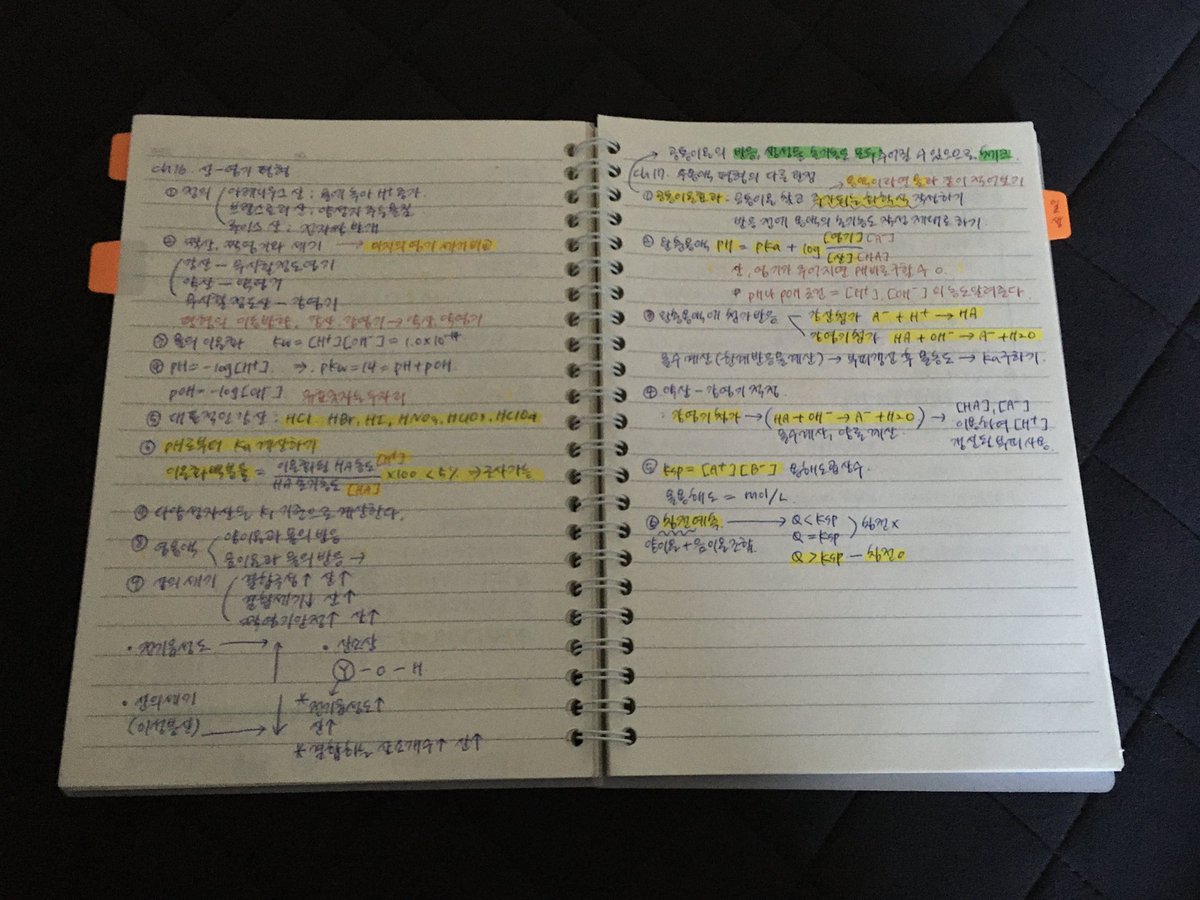 ch16. 산-염기 평형
① 정의
아레니우스 산 : 물에 녹아 H⁺ 증가.
브뢴스테드 산 : 양성자 주는 물질
루이스 산 : 전자쌍 받개
② 짝산, 짝염기와 세기 → 염기 세기 비교
강산 - 무시할정도염기
약산 - 약염기
무시할정도산 - 강염기
평형의 이동방향, 강산, 강염기 → 약산, 약염기
③ 물의 이온화 Kw = [H⁺][OH⁻] = 1.0×10⁻¹⁴
④ pH = -log[H⁺]. ⇒ pKw = 14 = pH + pOH.
pOH = -log[OH⁻] 유효숫자
⑤ 대표적인 강산 : HCl, HBr, HI, HNO₃, HClO₃, HClO₄
⑥ pH로부터 Ka 계산하기
이온화백분율 = 이온화된 HA농도 [H⁺] / HA 초기농도 [HA] ×100 < 5% → 근사가능
다양성자산은 K₁ 기준으로 계산한다.
⑧ 염용액
양이온과 물의 반응
음이온과 물의 반응 →
⑨ 산의 세기
결합극성↑ 산↑
결합세기↓ 산↑
짝염기안정↑ 산↑
• 전기음성도 →
• 산소산
Y - O - H
• 산의 세기
(이성분산) →
* 전기음성도↑
산↑
* 결합하는 산소개수↑ 산↑
공통이온의 반응, 초기농도 모두 주어질 수 있으므로, 체크.
ch17. 수용액 평형의 다른 측면
① 공통이온효과 : 공통이온 찾고 작성하기
반응 전에 용액의 초기농도 작성 제대로 하기.
② 완충용액 pH = pKa + log [염기] [A⁻] / [산] [HA]
산, 염기가 주어지면 pH바로구할 수 O.
* pH나 pOH 조건 = [H⁺], [OH⁻] 의 농도알려준다.
③ 완충용액에 첨가반응
강산첨가 A⁻ + H⁺ → HA
강염기첨가 HA + OH⁻ → A⁻ + H₂O
몰수계산 (한계반응물계산) → 부피갱신 후 몰농도 → Ka구하기.
④ 약산 - 강염기 적정
: 강염기첨가 → (HA + OH⁻ → A⁻ + H₂O) → [HA], [A⁻]
이용하여 [H⁺]
몰수계산,
갱신된 부피사용.
⑤ Ksp = [A⁺][B⁻] 용해도곱상수.
몰용해도 = mol/L.
⑥ 침전예측. → Q < Ksp
Q = Ksp
침전 X
양이온 + 음이온조합.
Q > Ksp - 침전 O